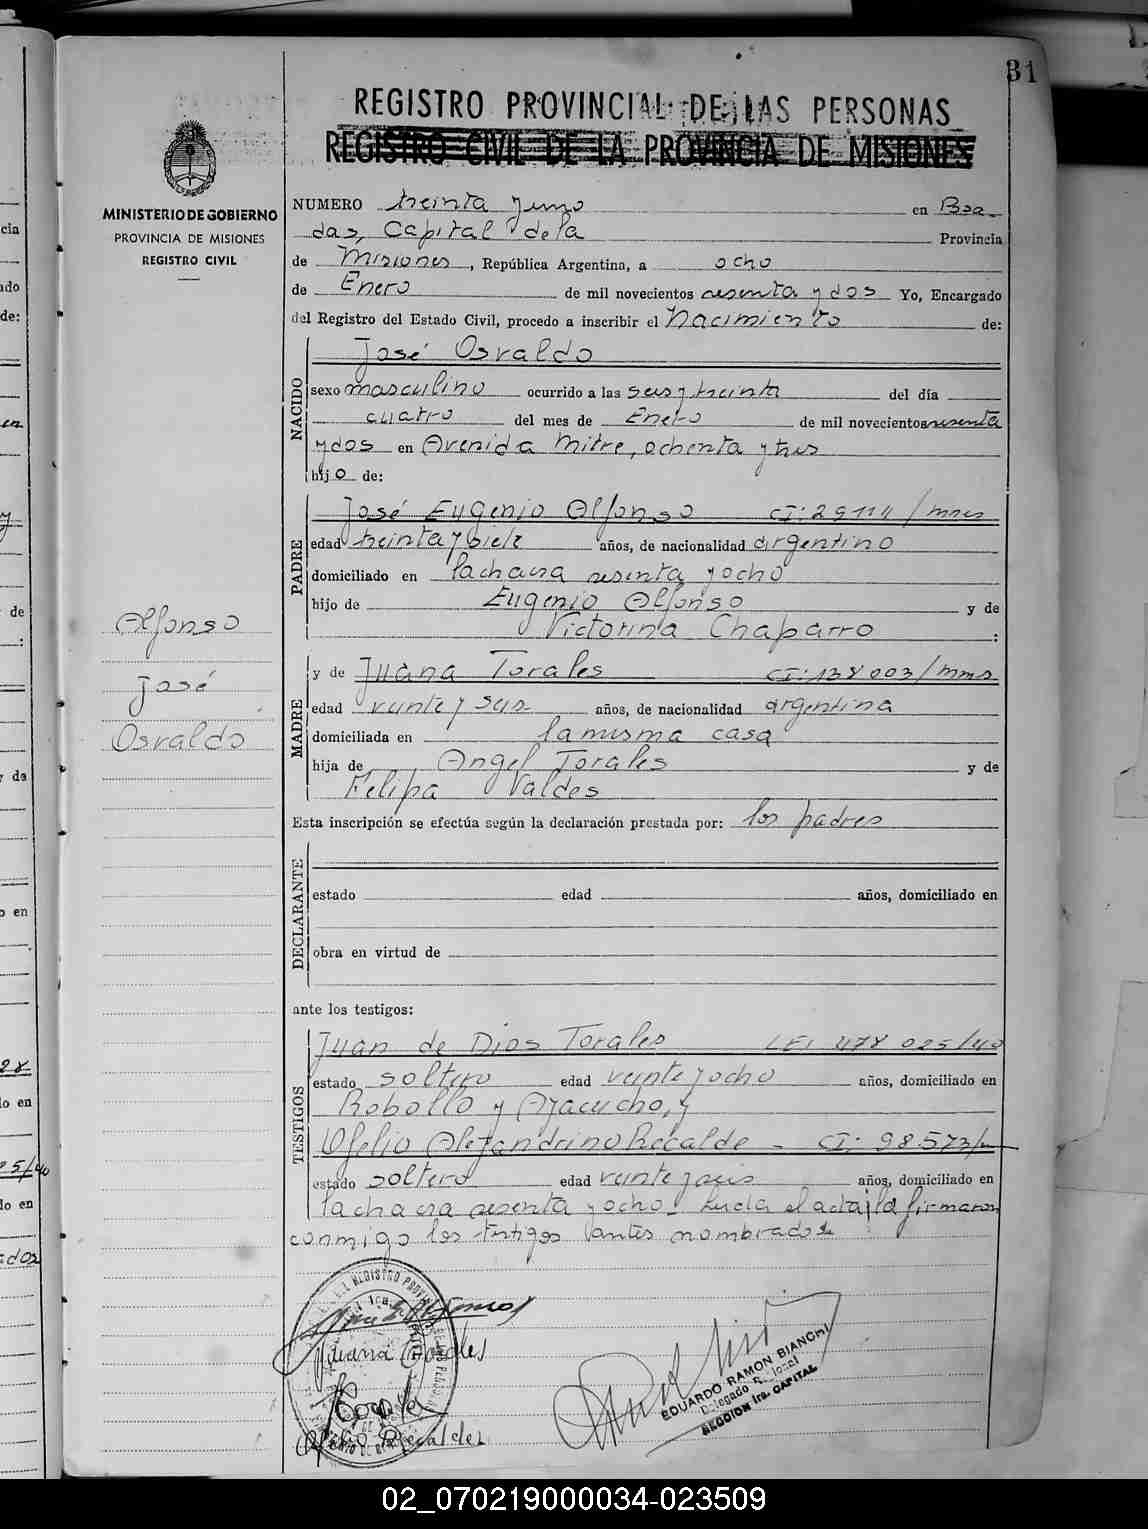 31
REGISTRO PROVINCIAL DE LAS PERSONAS
REGISTRO CIVIL DE LA PROVINCIA DE MISIONES
MINISTERIO DE GOBIERNO
PROVINCIA DE MISIONES
REGISTRO CIVIL
NUMERO treinta y uno en Posa-
das, Capital de la Provincia
de Misiones, República Argentina, a ocho
de Enero de mil novecientos sesenta y dos Yo, Encargado
del Registro del Estado Civil, procedo a inscribir el Nacimiento de:
NACIDO
José Osvaldo
sexo masculino ocurrido a las seis y treinta del día
cuatro del mes de Enero de mil novecientos sesenta
y dos en Avenida Mitre, ochenta y tres
hijo de:
PADRE
José Eugenio Alfonso CI: 29114/mnes
edad treinta y siete años, de nacionalidad argentino
domiciliado en la chacra sesenta y ocho
hijo de Eugenio Alfonso y de
Victorina Chaparro :
Alfonso
José
Osvaldo
MADRE
y de Juana Torales CI: 138003/mns
edad veinte y seis años, de nacionalidad argentina
domiciliada en la misma casa
hija de Angel Torales y de
Felipa Valdes
Esta inscripción se efectúa según la declaración prestada por: los padres
DECLARANTE
estado edad años, domiciliado en
obra en virtud de
ante los testigos:
TESTIGOS
Juan de Dios Torales LE: 478025/40
estado soltero edad veinte y ocho años, domiciliado en
Robollo y Ayacucho, y
Ofelio Alejandrino Recalde - CI: 98573/
estado soltero edad veinte y seis años, domiciliado en
la chacra sesenta y ocho - Leída el acta, la firmaron
conmigo los testigos antes nombrados
Juana Torales
Ofelio Recalde
EDUARDO RAMON BIANCHI
Delegado Regional
SECCION 1ra. CAPITAL
02_070219000034-023509